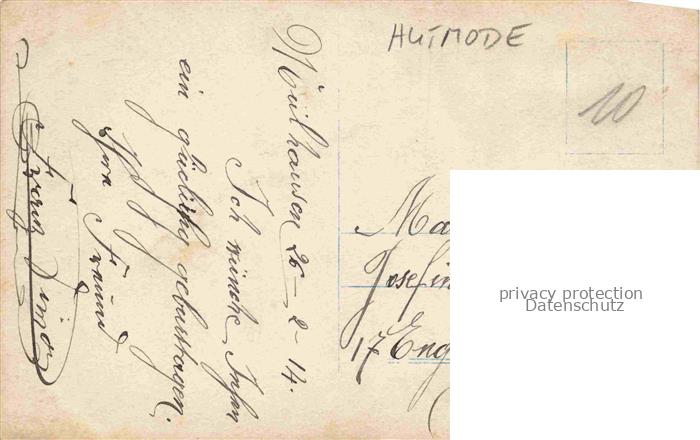 HUTMODE
10
Mülhausen 26-2-14.
Ich wünsche Ihnen
ein glücklig geburtstagen.
Ihra Freund
Franz
Ma
Josefin
17 Eng
privacy protection
Datenschutz